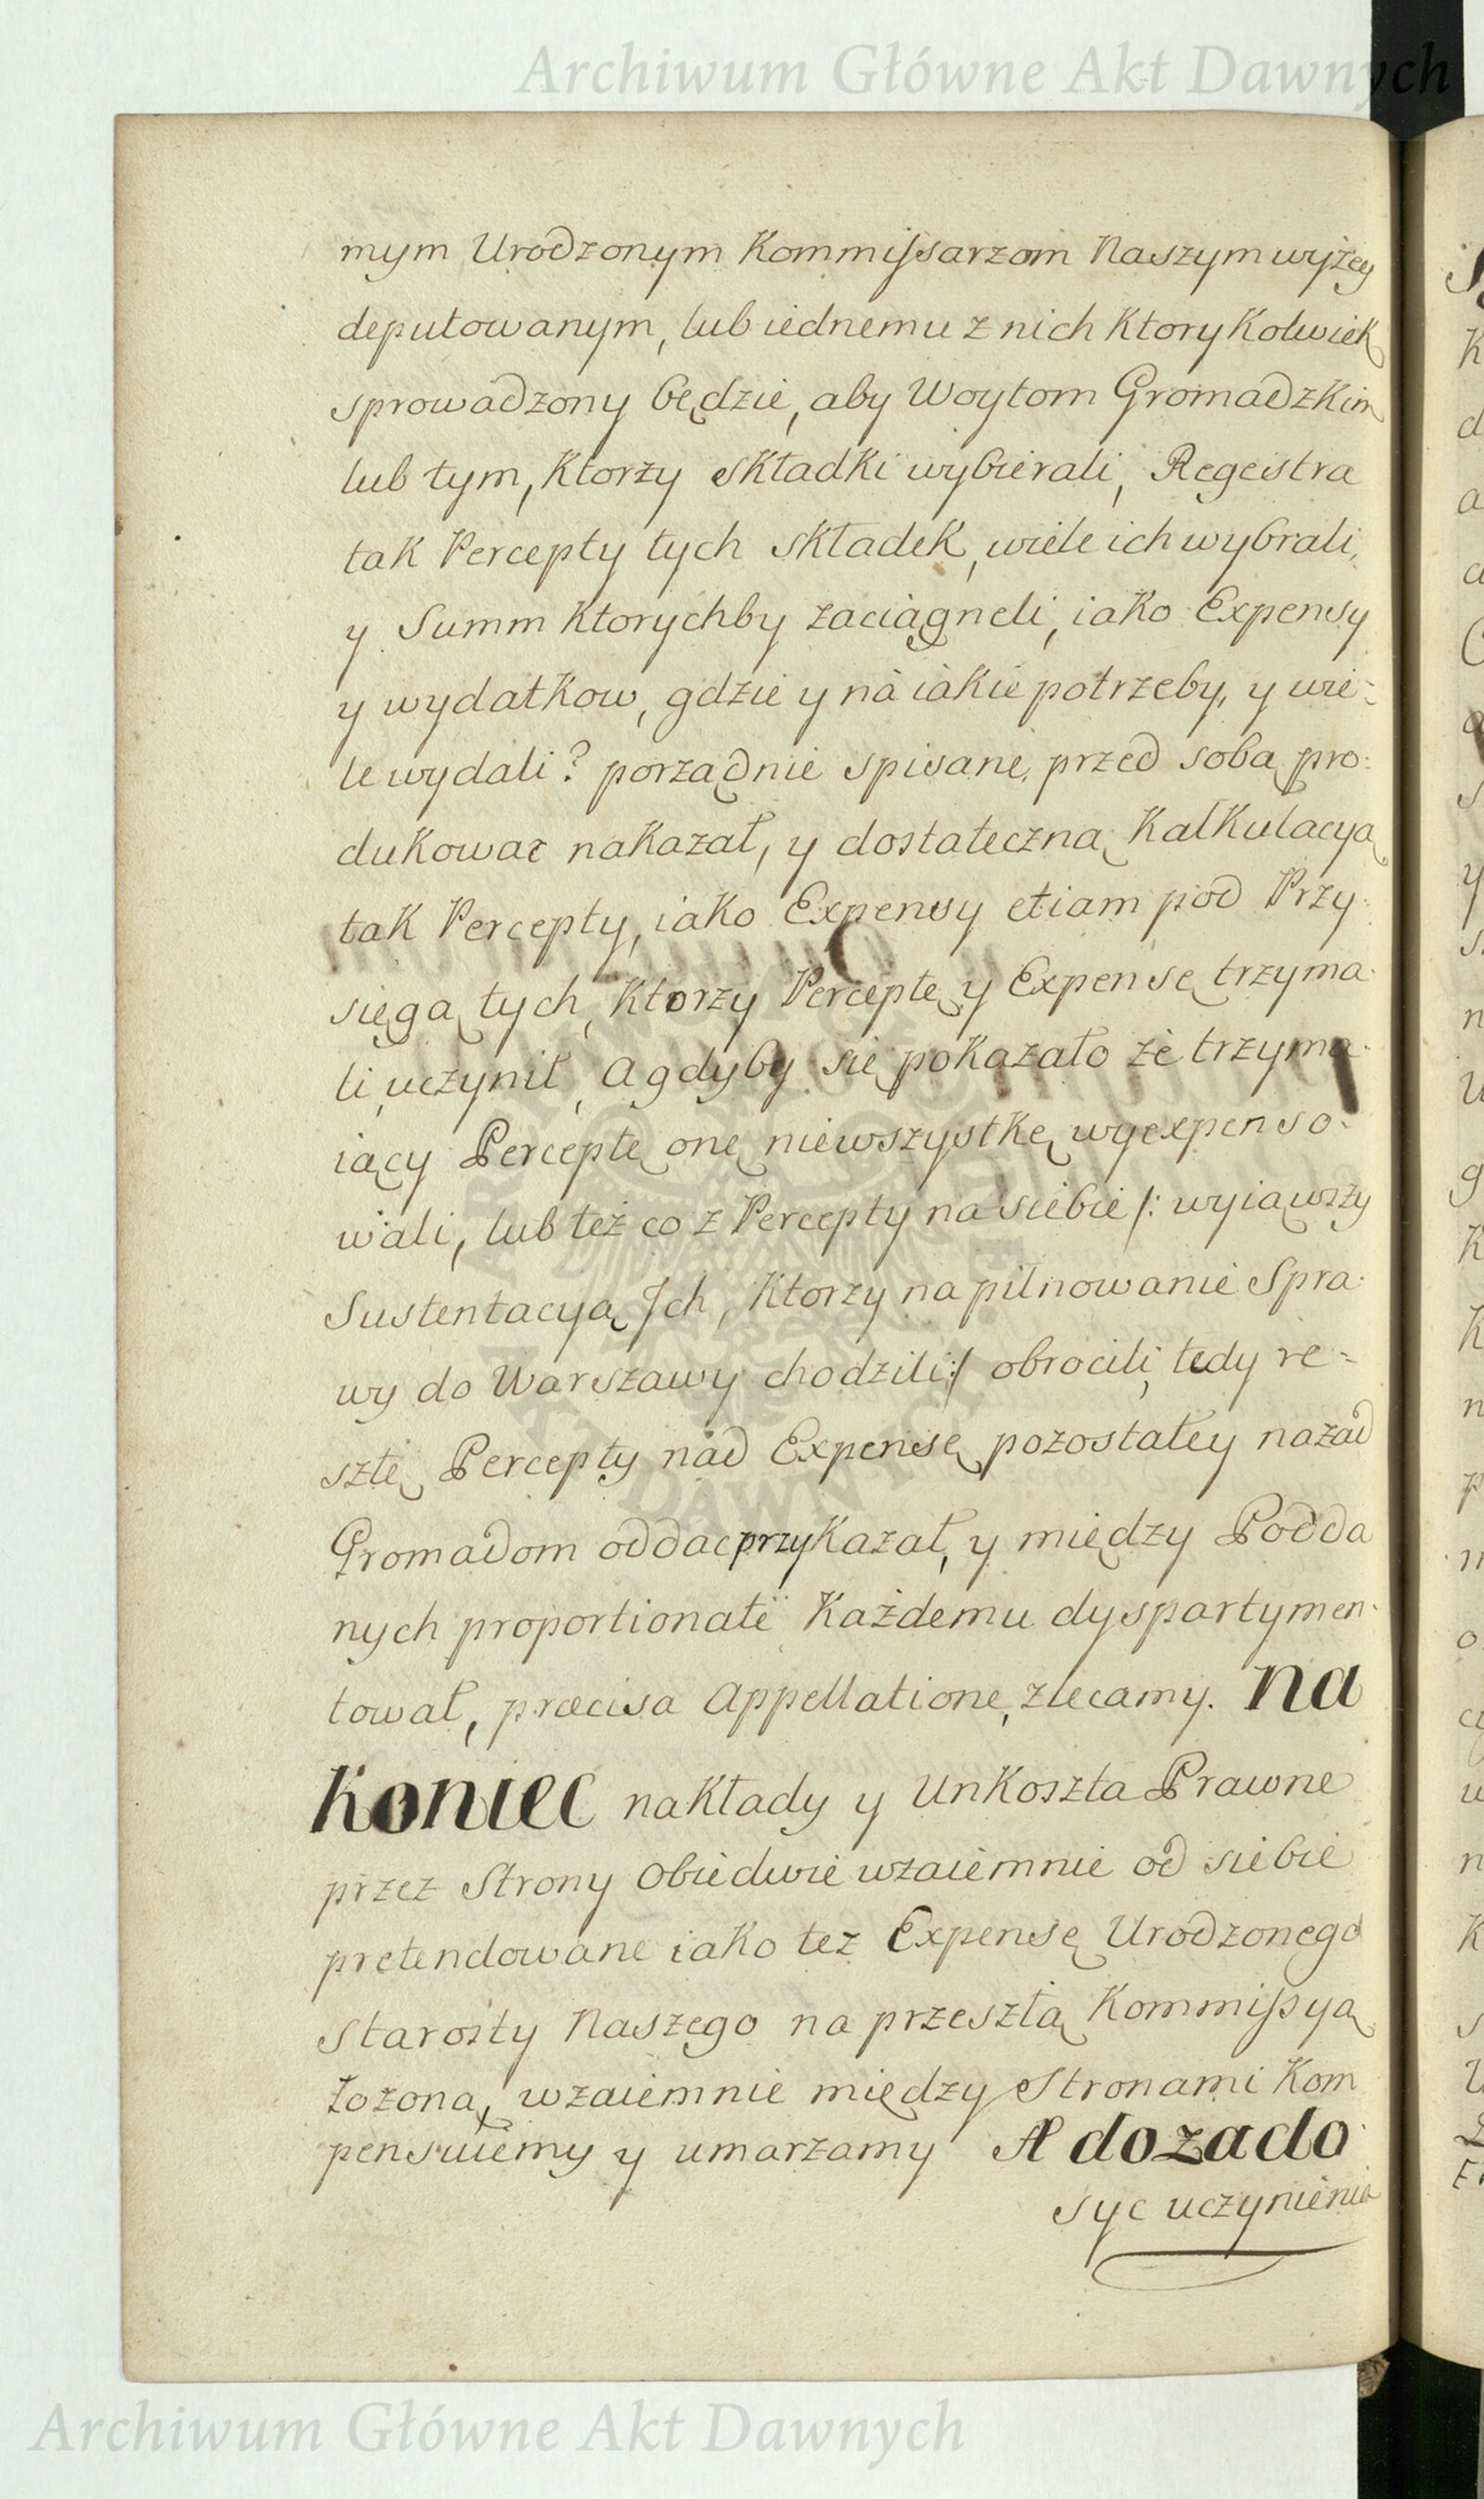 Archiwum Główne Akt Dawnych
mym Urodzonym Kommissarzom Naszym wyżey
deputowanym, lub iednemu z nich Ktory Kolwiek
sprowadzony będzie, aby Woytom Gromadzkim
lub tym, Ktorzy składki wybierali, Regestra
tak Percepty tych składek, wiele ich wybrali,
y Summ Ktorychby zaciągneli, iako Expensy
y wydatkow, gdzie y nà iàkie potrzeby, y wie=
le wydali? porządnie spisane, przed sobą pro=
dukowac nakazał, y dostateczną Kalkulacyą
tak Percepty, iako Expensy etiam pod Przy=
sięgą tych, Ktorzy Perceptę y Expensę trzyma=
li, uczynił, A gdyby się pokazało że trzyma=
iący Perceptę onę niewszystkę wyexpenso=
wali, lub też co z Percepty na siebie /: wyiąwszy
Sustentacyą Ich, Ktorzy na pilnowanie Spra=
wy do Warszawy chodzili :/ obrocili, tedy re=
sztę Percepty nad Expensę pozostałey nazad
Gromadom oddac przykazał, y między Podda
nych proportionatè Każdemu dyspartymen=
tował, præcisa Appellatione, zlecamy. Na
Koniec nakłady y Unkoszta Prawne
przez Strony Obiedwie wzaiemnie od siebie
pretendowane iako też Expensę Urodzonego
Starosty Naszego na przeszłą Kommissyą
łożoną, wzaiemnie między Stronami Kom
pensuiemy y umarzamy A do zado=
syc uczynienia
ARCHIWUM GŁÓWNE
AKT DAWNYCH
Archiwum Główne Akt Dawnych